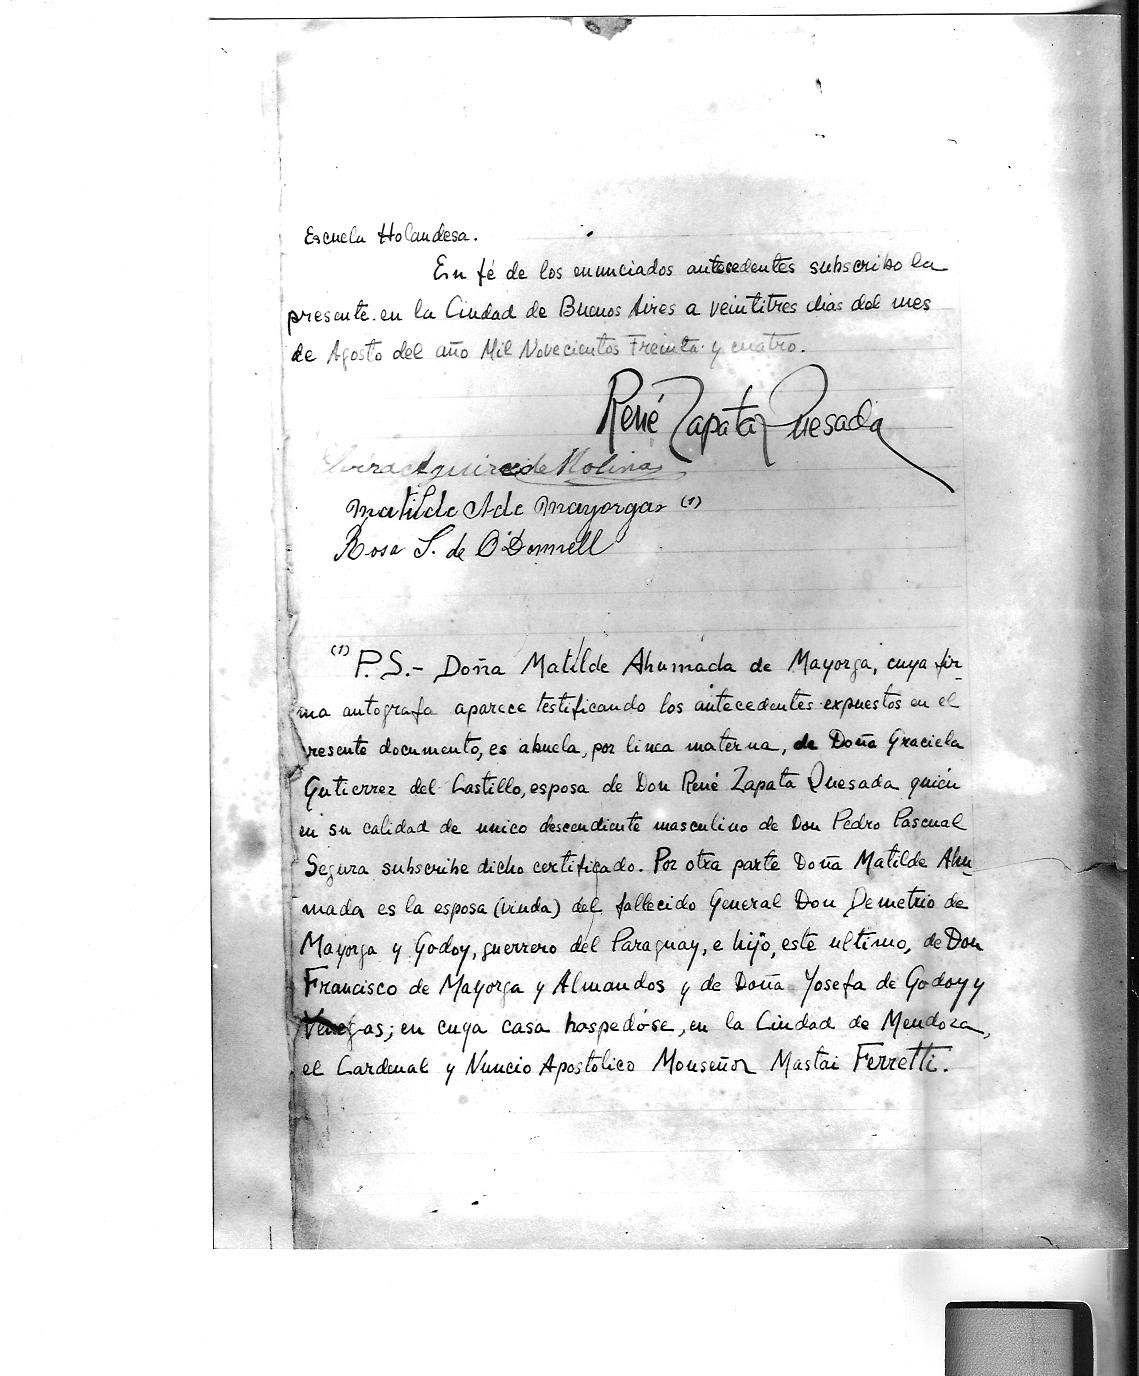 Escuela Holandesa.
En fé de los enunciados antecedentes subscribo la
presente en la Ciudad de Buenos Aires a veintitres dias del mes
de Agosto del año Mil Novecientos Treinta y cuatro.
René Zapata Quesada
Elvira Aguirre de Molina
Matilde A de Mayorga (1)
Rosa S. de O'Donnell
(1) P.S.- Doña Matilde Ahumada de Mayorga, cuya fir-
ma autografa aparece testificando los antecedentes expuestos en el
presente documento, es abuela, por linea materna, de Doña Graciela
Gutierrez del Castillo, esposa de Don René Zapata Quesada quién
en su calidad de unico descendiente masculino de Don Pedro Pascual
Segura subscribe dicho certificado. Por otra parte Doña Matilde Ahu-
mada es la esposa (viuda) del fallecido General Don Demetrio de
Mayorga y Godoy, guerrero del Paraguay, e hijo, este ultimo, de Don
Francisco de Mayorga y Almandos y de Doña Yosefa de Godoy y
Venegas; en cuya casa hospedóse, en la Ciudad de Mendoza,
el Cardenal y Nuncio Apostolico Monseñor Mastai Ferretti.